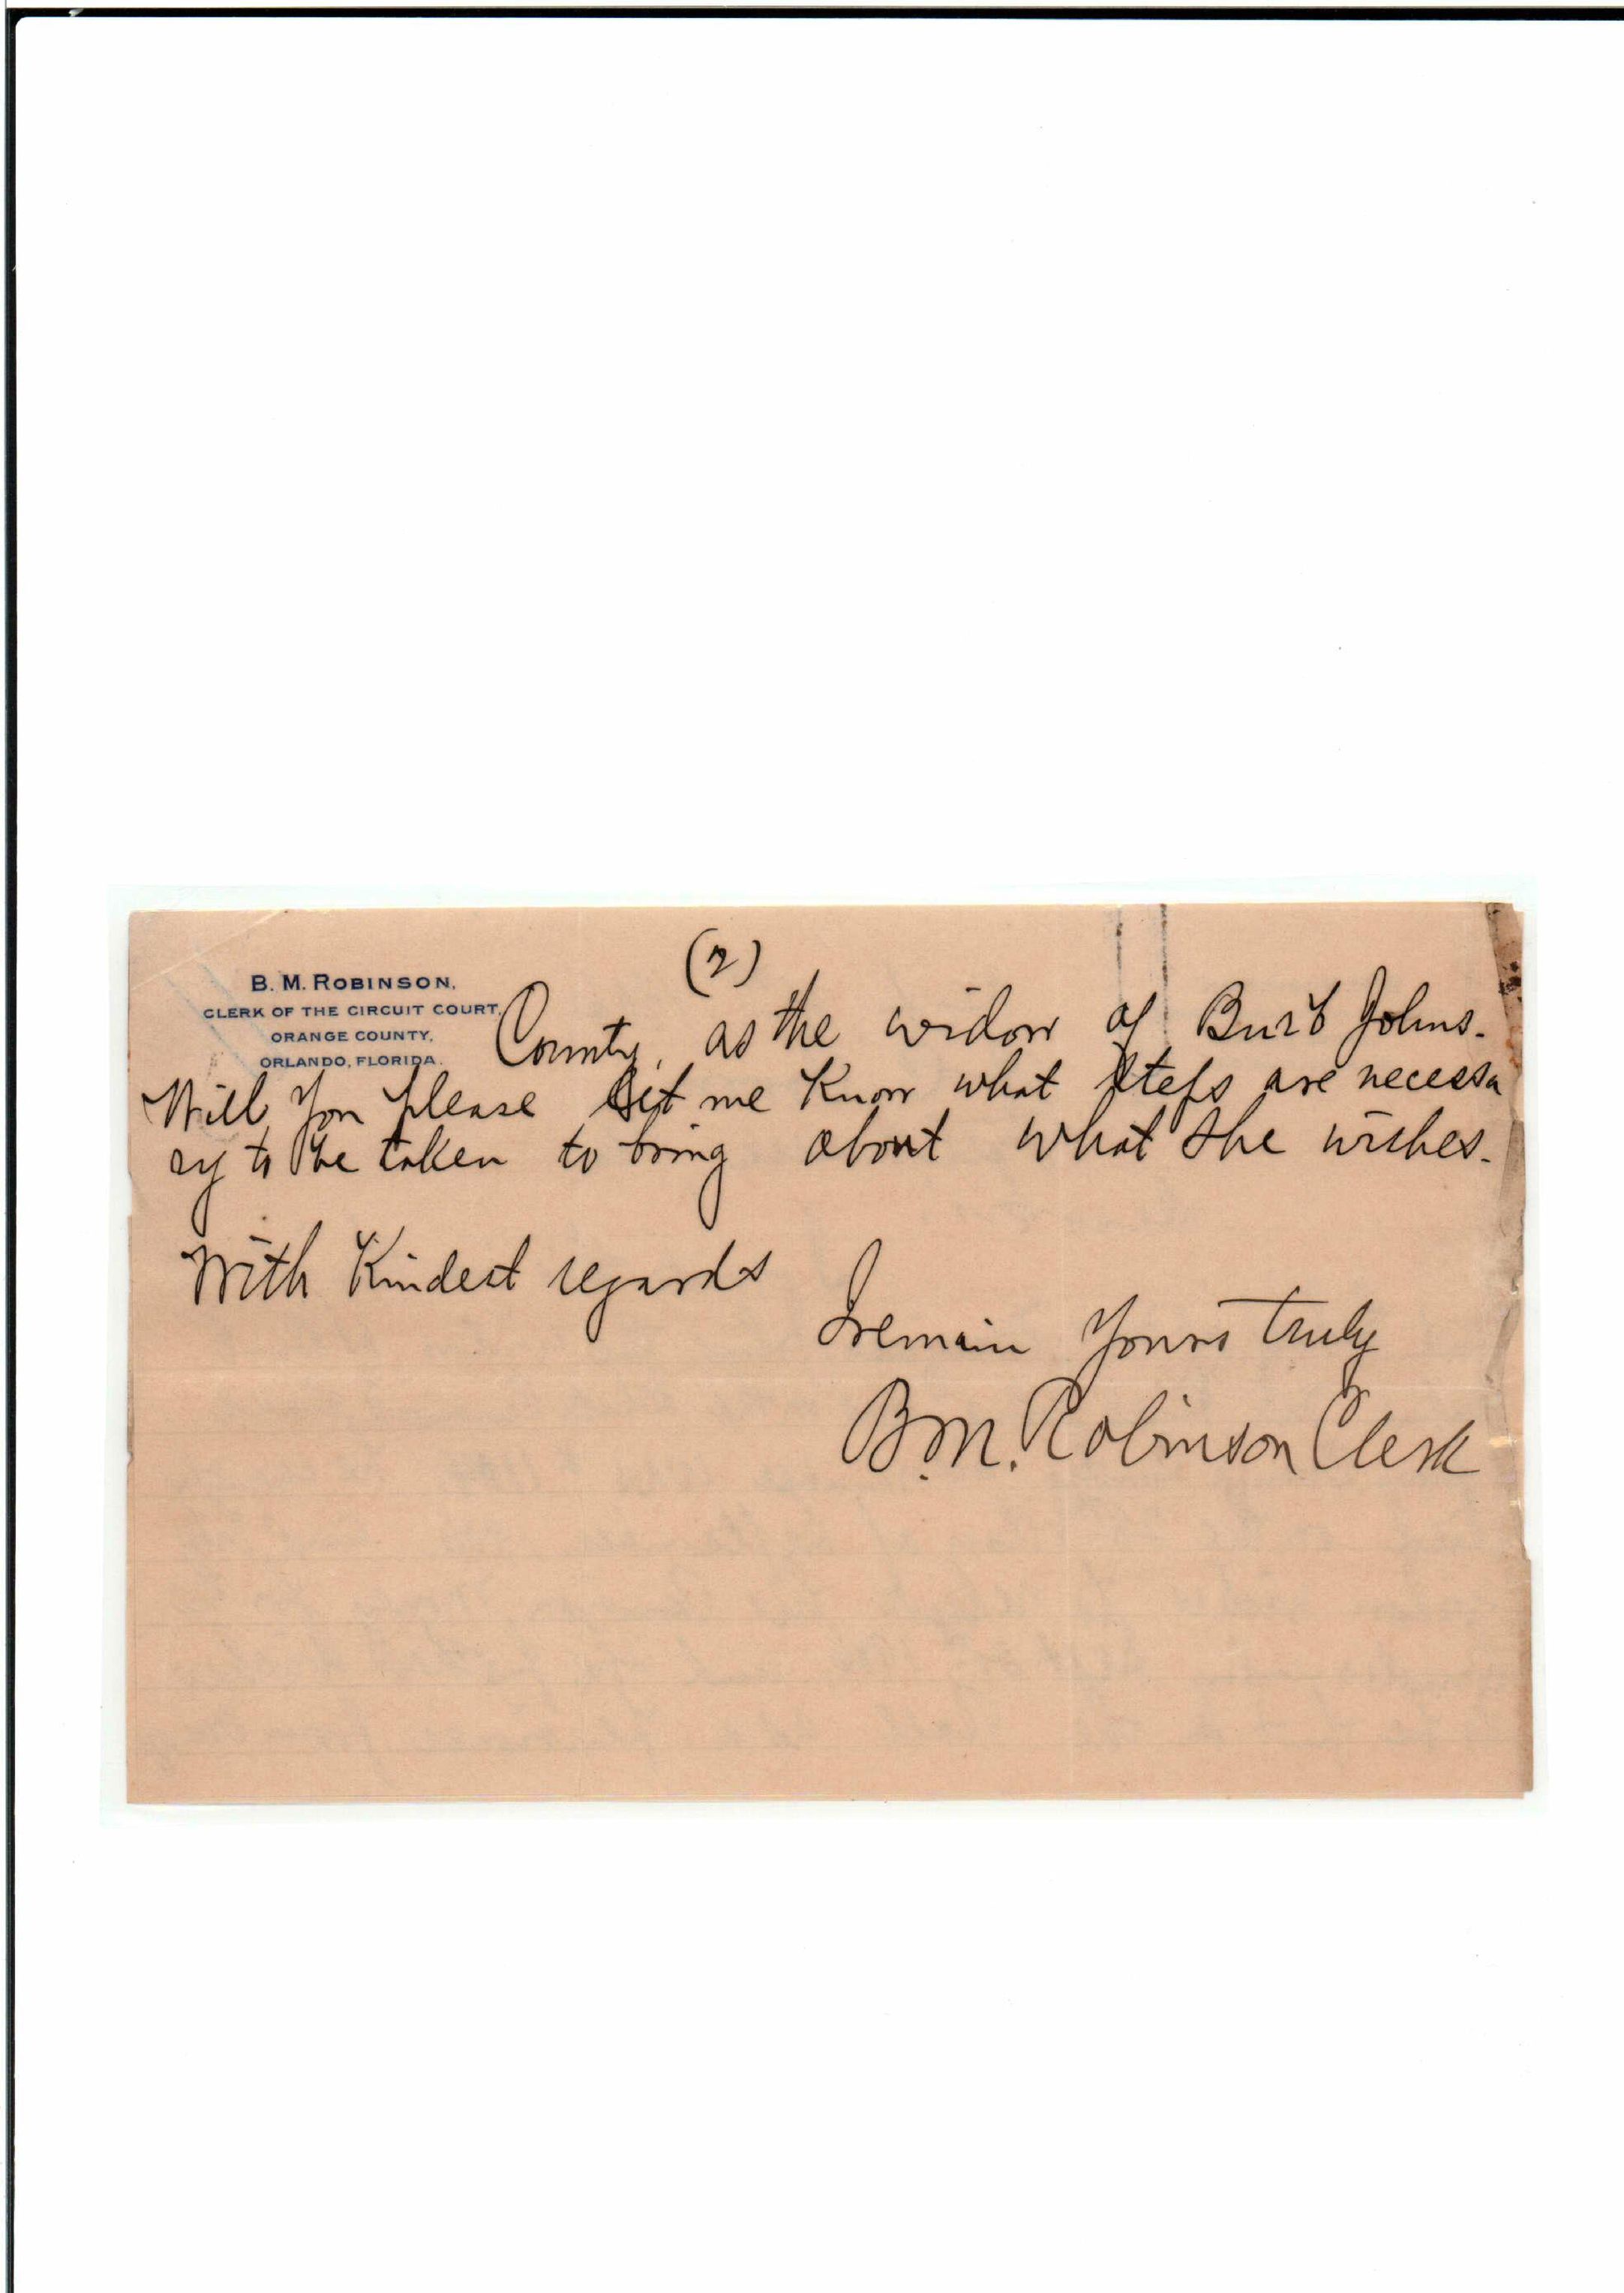 (2)
B. M. ROBINSON,
CLERK OF THE CIRCUIT COURT,
ORANGE COUNTY,
ORLANDO, FLORIDA.
County, as the widow of Burt Johns.
Will you please let me know what steps are necessa
ry to be taken to bring about what she wishes.
With Kindest regards
I remain Yours truly
B.M. Robinson Clerk